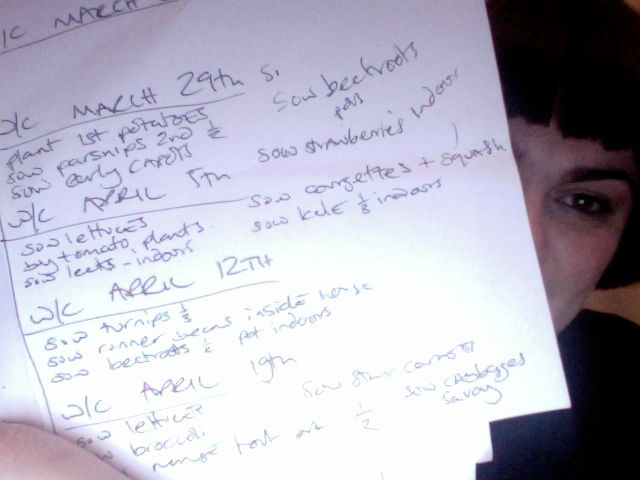 /C MARCH
W/C MARCH 29th
plant 1st potatoes
sow parsnips 2nd 1/2
sow early carots
sow beetroots
sow strawberries indoor
W/C APRIL 5th
sow lettuces
by tomato plants
sow leeks - indoors
sow corgettes + squash
sow kale 1/3 indoors
W/C APRIL 12TH
sow turnips 1/3
sow runner beans inside house
sow beetroots 1/2 pot indoors
W/C APRIL 19th
sow lettuce
broccoli
out 1/2
sow carrots
sow cabbages
savoy